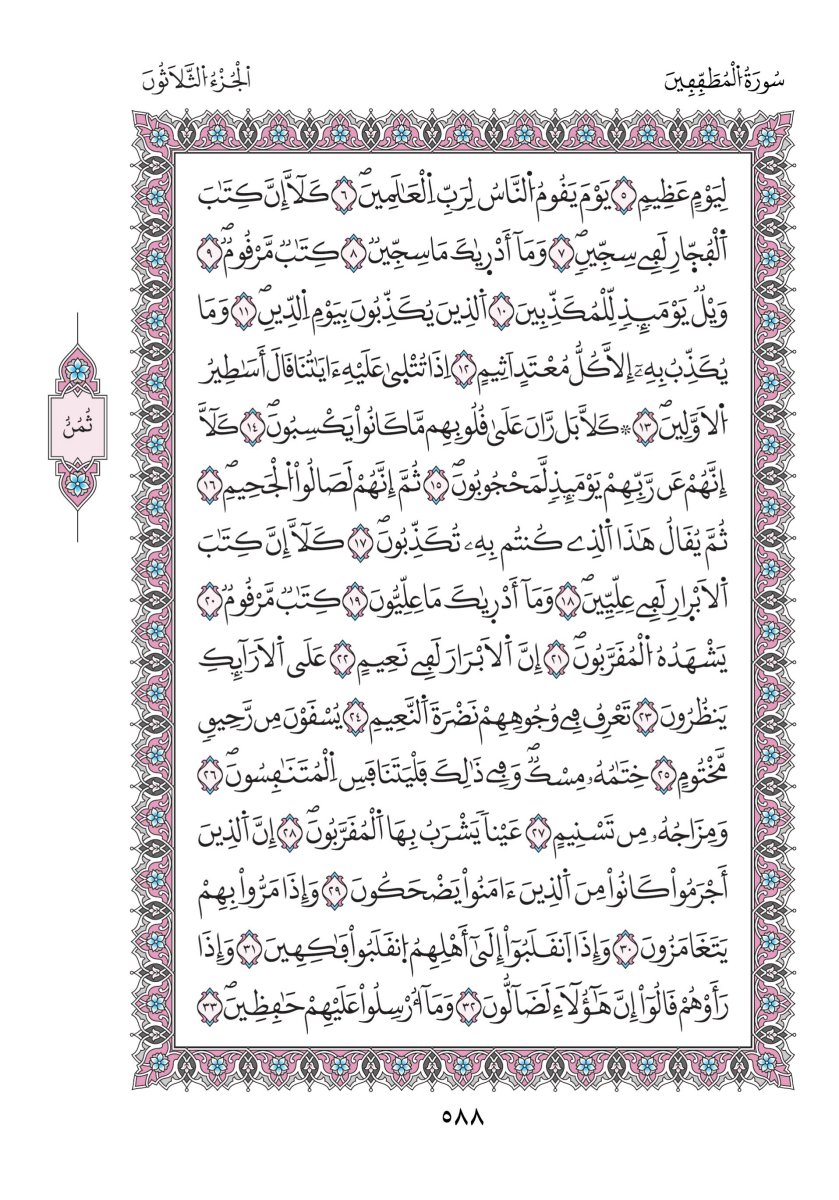 سُورَةُ الْمُطَفِّفِينَ
الْجُزْءُ الثَّلَاثُونَ
لِيَوْمٍ عَظِيمٍ ٥ يَوْمَ يَقُومُ النَّاسُ لِرَبِّ الْعَٰلَمِينَۖ ٦ كَلَّآ إِنَّ كِتَٰبَ
اَلْفُجّارِ لَفِے سِجِّينٖۖ ٧ وَمَآ أَدْر۪يٰكَ مَا سِجِّينٞۖ ٨ كِتَٰبٞ مَّرْقُومٞۖ ٩
وَيْلٞ يَوْمَئِذٖ لِّلْمُكَذِّبِينَ ١٠ اَلذِينَ يُكَذِّبُونَ بِيَوْمِ اِلدِّينِۖ ١١ وَمَا
يُكَذِّبُ بِهِۦٓ إِلَّا كُلُّ مُعْتَدٍ اَثِيمٍ ١٢ اِذَا تُتْل۪يٰ عَلَيْهِ ءَايَٰتُنَا قَالَ أَسَٰطِيرُ
اُلَاوَّلِينَۖ ١٣ ۞ كَلَّا بَل رَّانَ عَلَيٰ قُلُوبِهِم مَّا كَانُواْ يَكْسِبُونَۖ ١٤ كَلَّآ
إِنَّهُمْ عَن رَّبِّهِمْ يَوْمَئِذٖ لَّمَحْجُوبُونَۖ ١٥ ثُمَّ إِنَّهُمْ لَصَالُواْ اُلْجَحِيمِۖ ١٦
ثُمَّ يُقَالُ هَٰذَا اَلذِے كُنتُم بِهِۦ تُكَذِّبُونَۖ ١٧ كَلَّآ إِنَّ كِتَٰبَ
اَلَابْر۪ارِ لَفِے عِلِّيِّينَۖ ١٨ وَمَآ أَدْر۪يٰكَ مَا عِلِّيُّونَ ١٩ كِتَٰبٞ مَّرْقُومٞ ٢٠
يَشْهَدُهُ اُلْمُقَرَّبُونَۖ ٢١ إِنَّ اَلَابْرَارَ لَفِے نَعِيمٍ ٢٢ عَلَي اَلَارَآئِكِ
يَنظُرُونَ ٢٣ تَعْرِفُ فِے وُجُوهِهِمْ نَضْرَةَ اَلنَّعِيمِ ٢٤ يُسْقَوْنَ مِن رَّحِيقٖ
مَّخْتُومٍ ٢٥ خِتَٰمُهُۥ مِسْكٞۖ وَفِے ذَٰلِكَ فَلْيَتَنَافَسِ اِلْمُتَنَٰفِسُونَۖ ٢٦
وَمِزَاجُهُۥ مِن تَسْنِيمٍ ٢٧ عَيْناٗ يَشْرَبُ بِهَا اَلْمُقَرَّبُونَۖ ٢٨ إِنَّ اَلذِينَ
أَجْرَمُواْ كَانُواْ مِنَ اَلذِينَ ءَامَنُواْ يَضْحَكُونَ ٢٩ وَإِذَا مَرُّواْ بِهِمْ
يَتَغَامَزُونَ ٣٠ وَإِذَا اَنقَلَبُوٓاْ إِلَيٰٓ أَهْلِهِمُ اُنقَلَبُواْ فَٰكِهِينَ ٣١ وَإِذَا
رَأَوْهُمْ قَالُوٓاْ إِنَّ هَٰٓؤُلَآءِ لَضَآلُّونَ ٣٢ وَمَآ أُرْسِلُواْ عَلَيْهِمْ حَٰفِظِينَۖ ٣٣
ثُمُنُ
٥٨٨